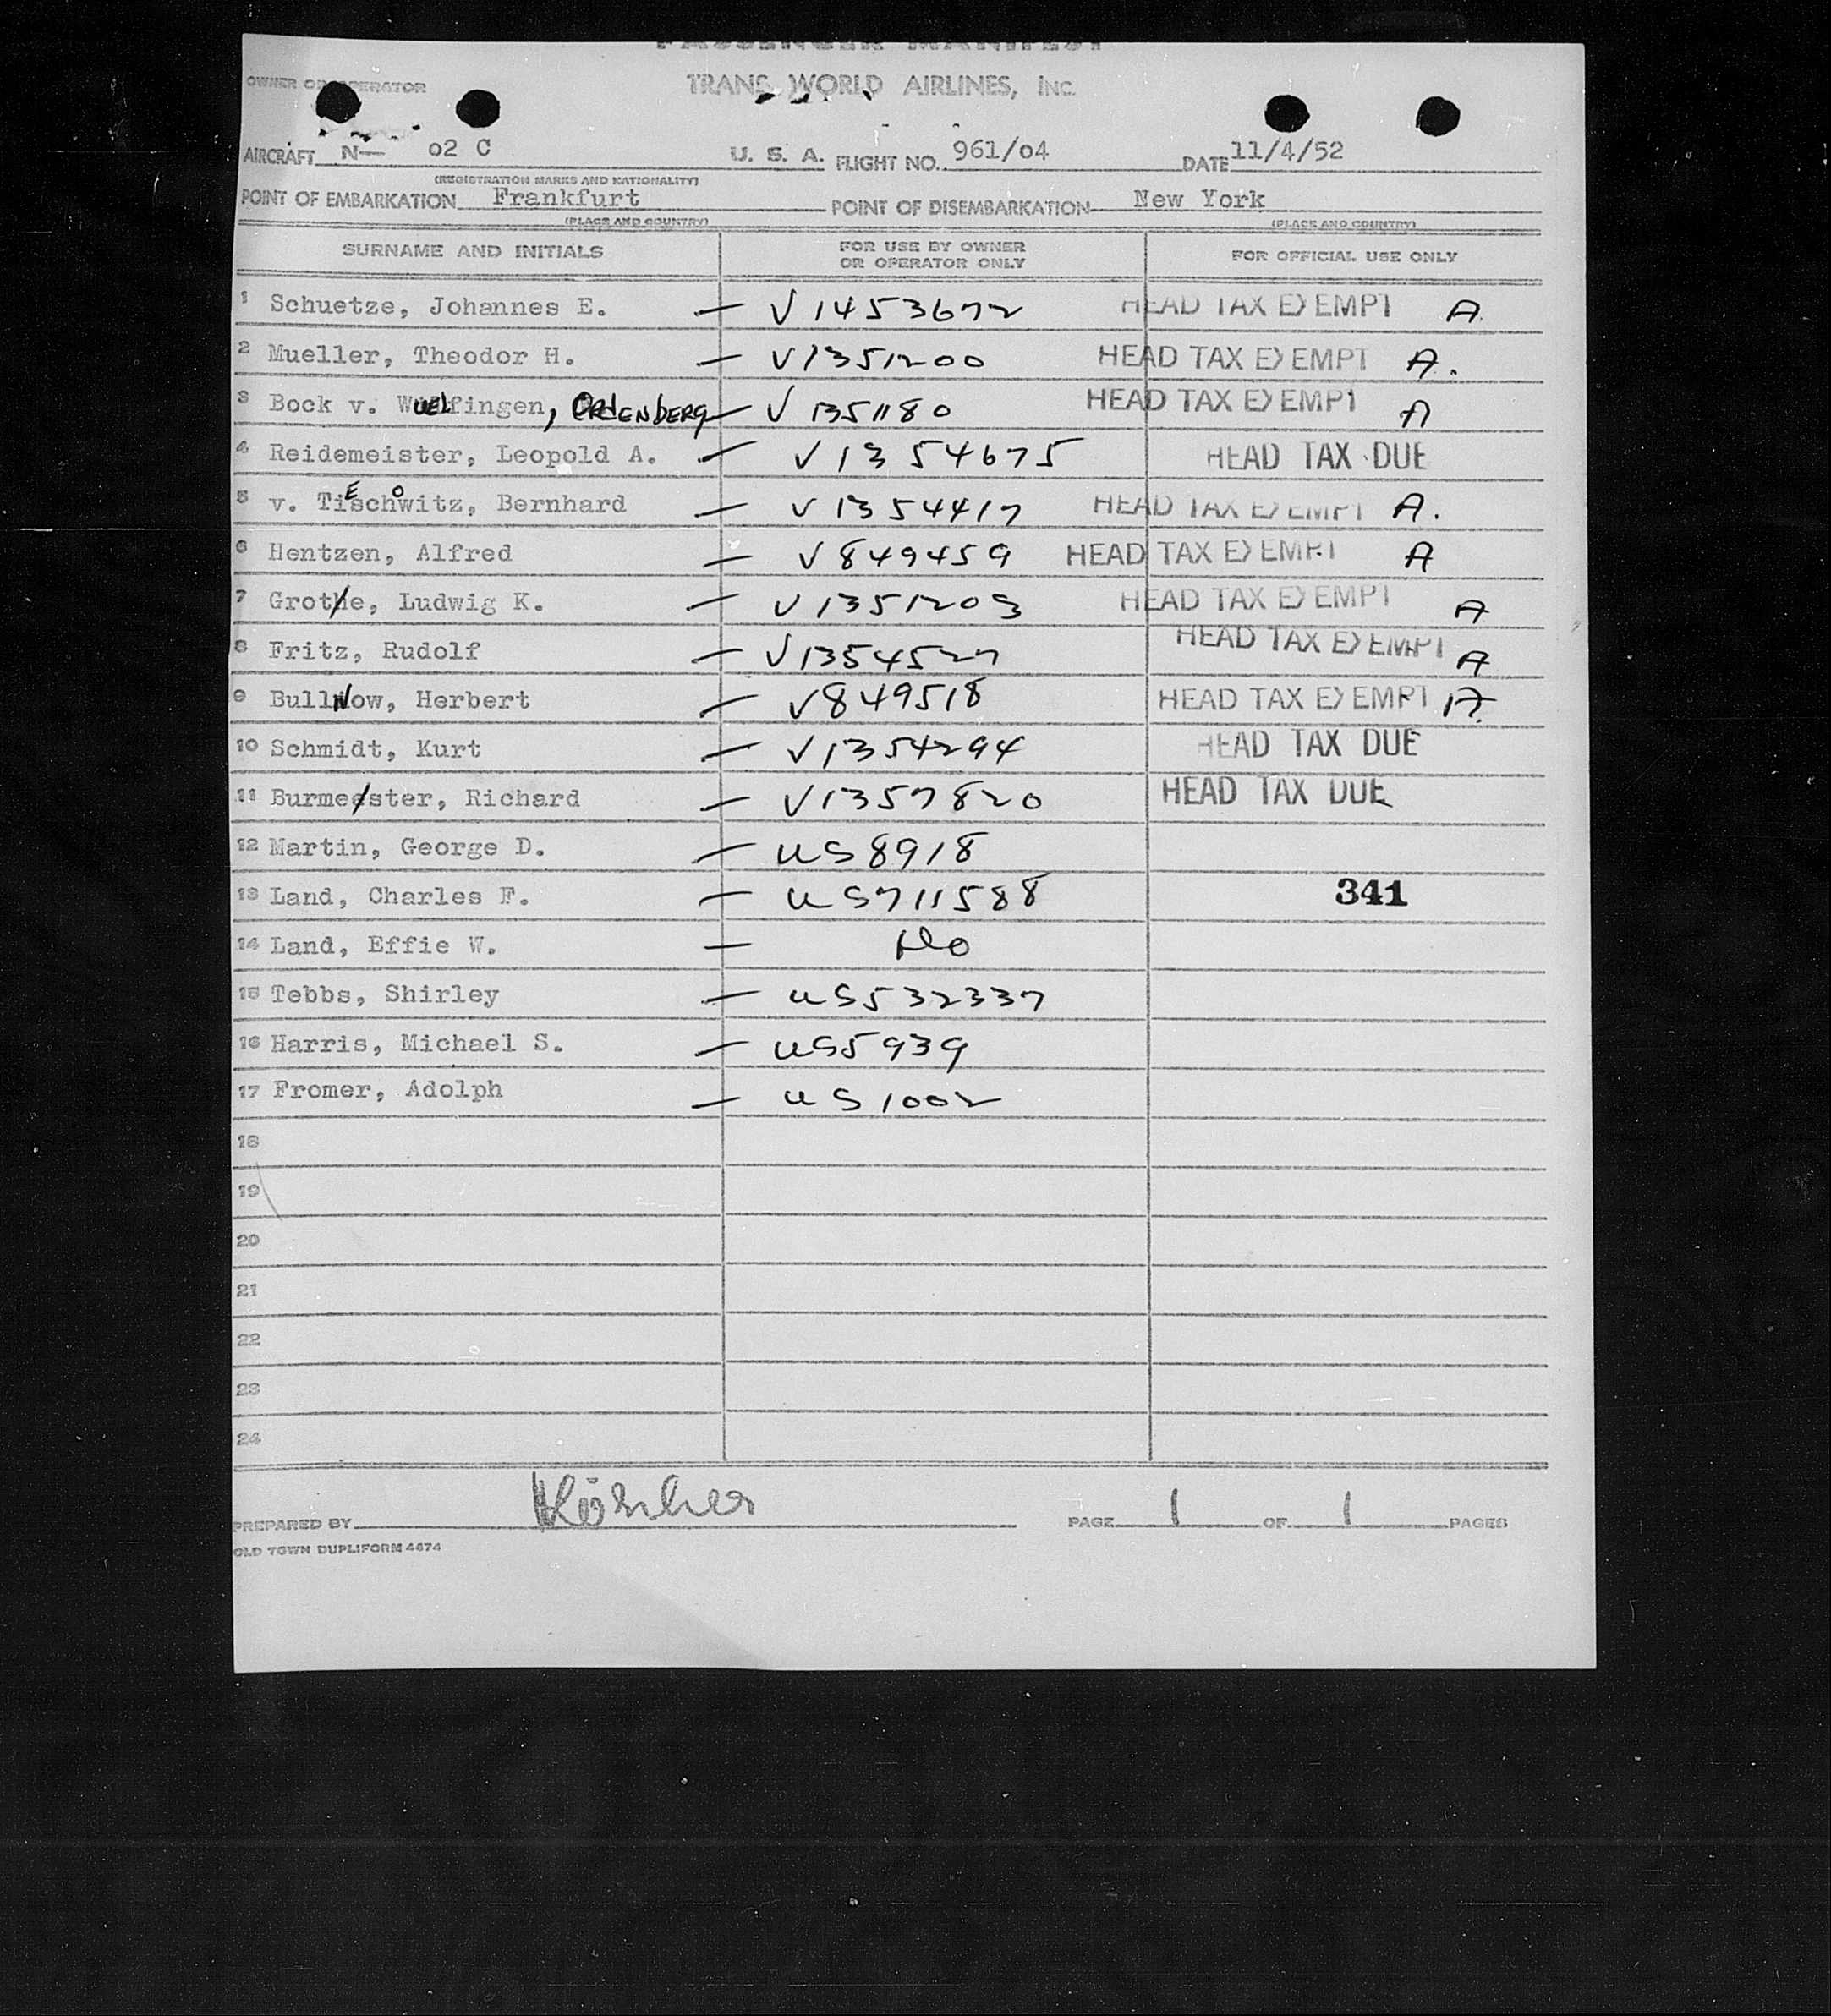 PASSENGER MANIFEST
OWNER OR OPERATOR TRANS WORLD AIRLINES, INC.
AIRCRAFT N— 02 C U. S. A. FLIGHT NO. 961/04 DATE 11/4/52
(REGISTRATION MARKS AND NATIONALITY)
POINT OF EMBARKATION Frankfurt POINT OF DISEMBARKATION New York
(PLACE AND COUNTRY) (PLACE AND COUNTRY)
SURNAME AND INITIALS FOR USE BY OWNER OR OPERATOR ONLY FOR OFFICIAL USE ONLY
1 Schuetze, Johannes E. — V1453672 HEAD TAX EXEMPT A.
2 Mueller, Theodor H. — V1351200 HEAD TAX EXEMPT A.
3 Bock v. Wuelfingen, ORDENBERG — V1351180 HEAD TAX EXEMPT A
4 Reidemeister, Leopold A. — V1354675 HEAD TAX DUE
5 v. TiEschowitz, Bernhard — V1354417 HEAD TAX EXEMPT A.
6 Hentzen, Alfred — V849459 HEAD TAX EXEMPT A
7 Grote, Ludwig K. — V1351203 HEAD TAX EXEMPT A
8 Fritz, Rudolf — V1354527 HEAD TAX EXEMPT A
9 BullNow, Herbert — V849518 HEAD TAX EXEMPT A.
10 Schmidt, Kurt — V1354294 HEAD TAX DUE
11 Burmester, Richard — V1357820 HEAD TAX DUE
12 Martin, George D. — US8918
13 Land, Charles F. — US711588 341
14 Land, Effie W. — Do
15 Tebbs, Shirley — US532337
16 Harris, Michael S. — US5939
17 Fromer, Adolph — US1002
18
19
20
21
22
23
24
PREPARED BY PAGE 1 OF 1 PAGES
OLD TOWN DUPLIFORM 4674